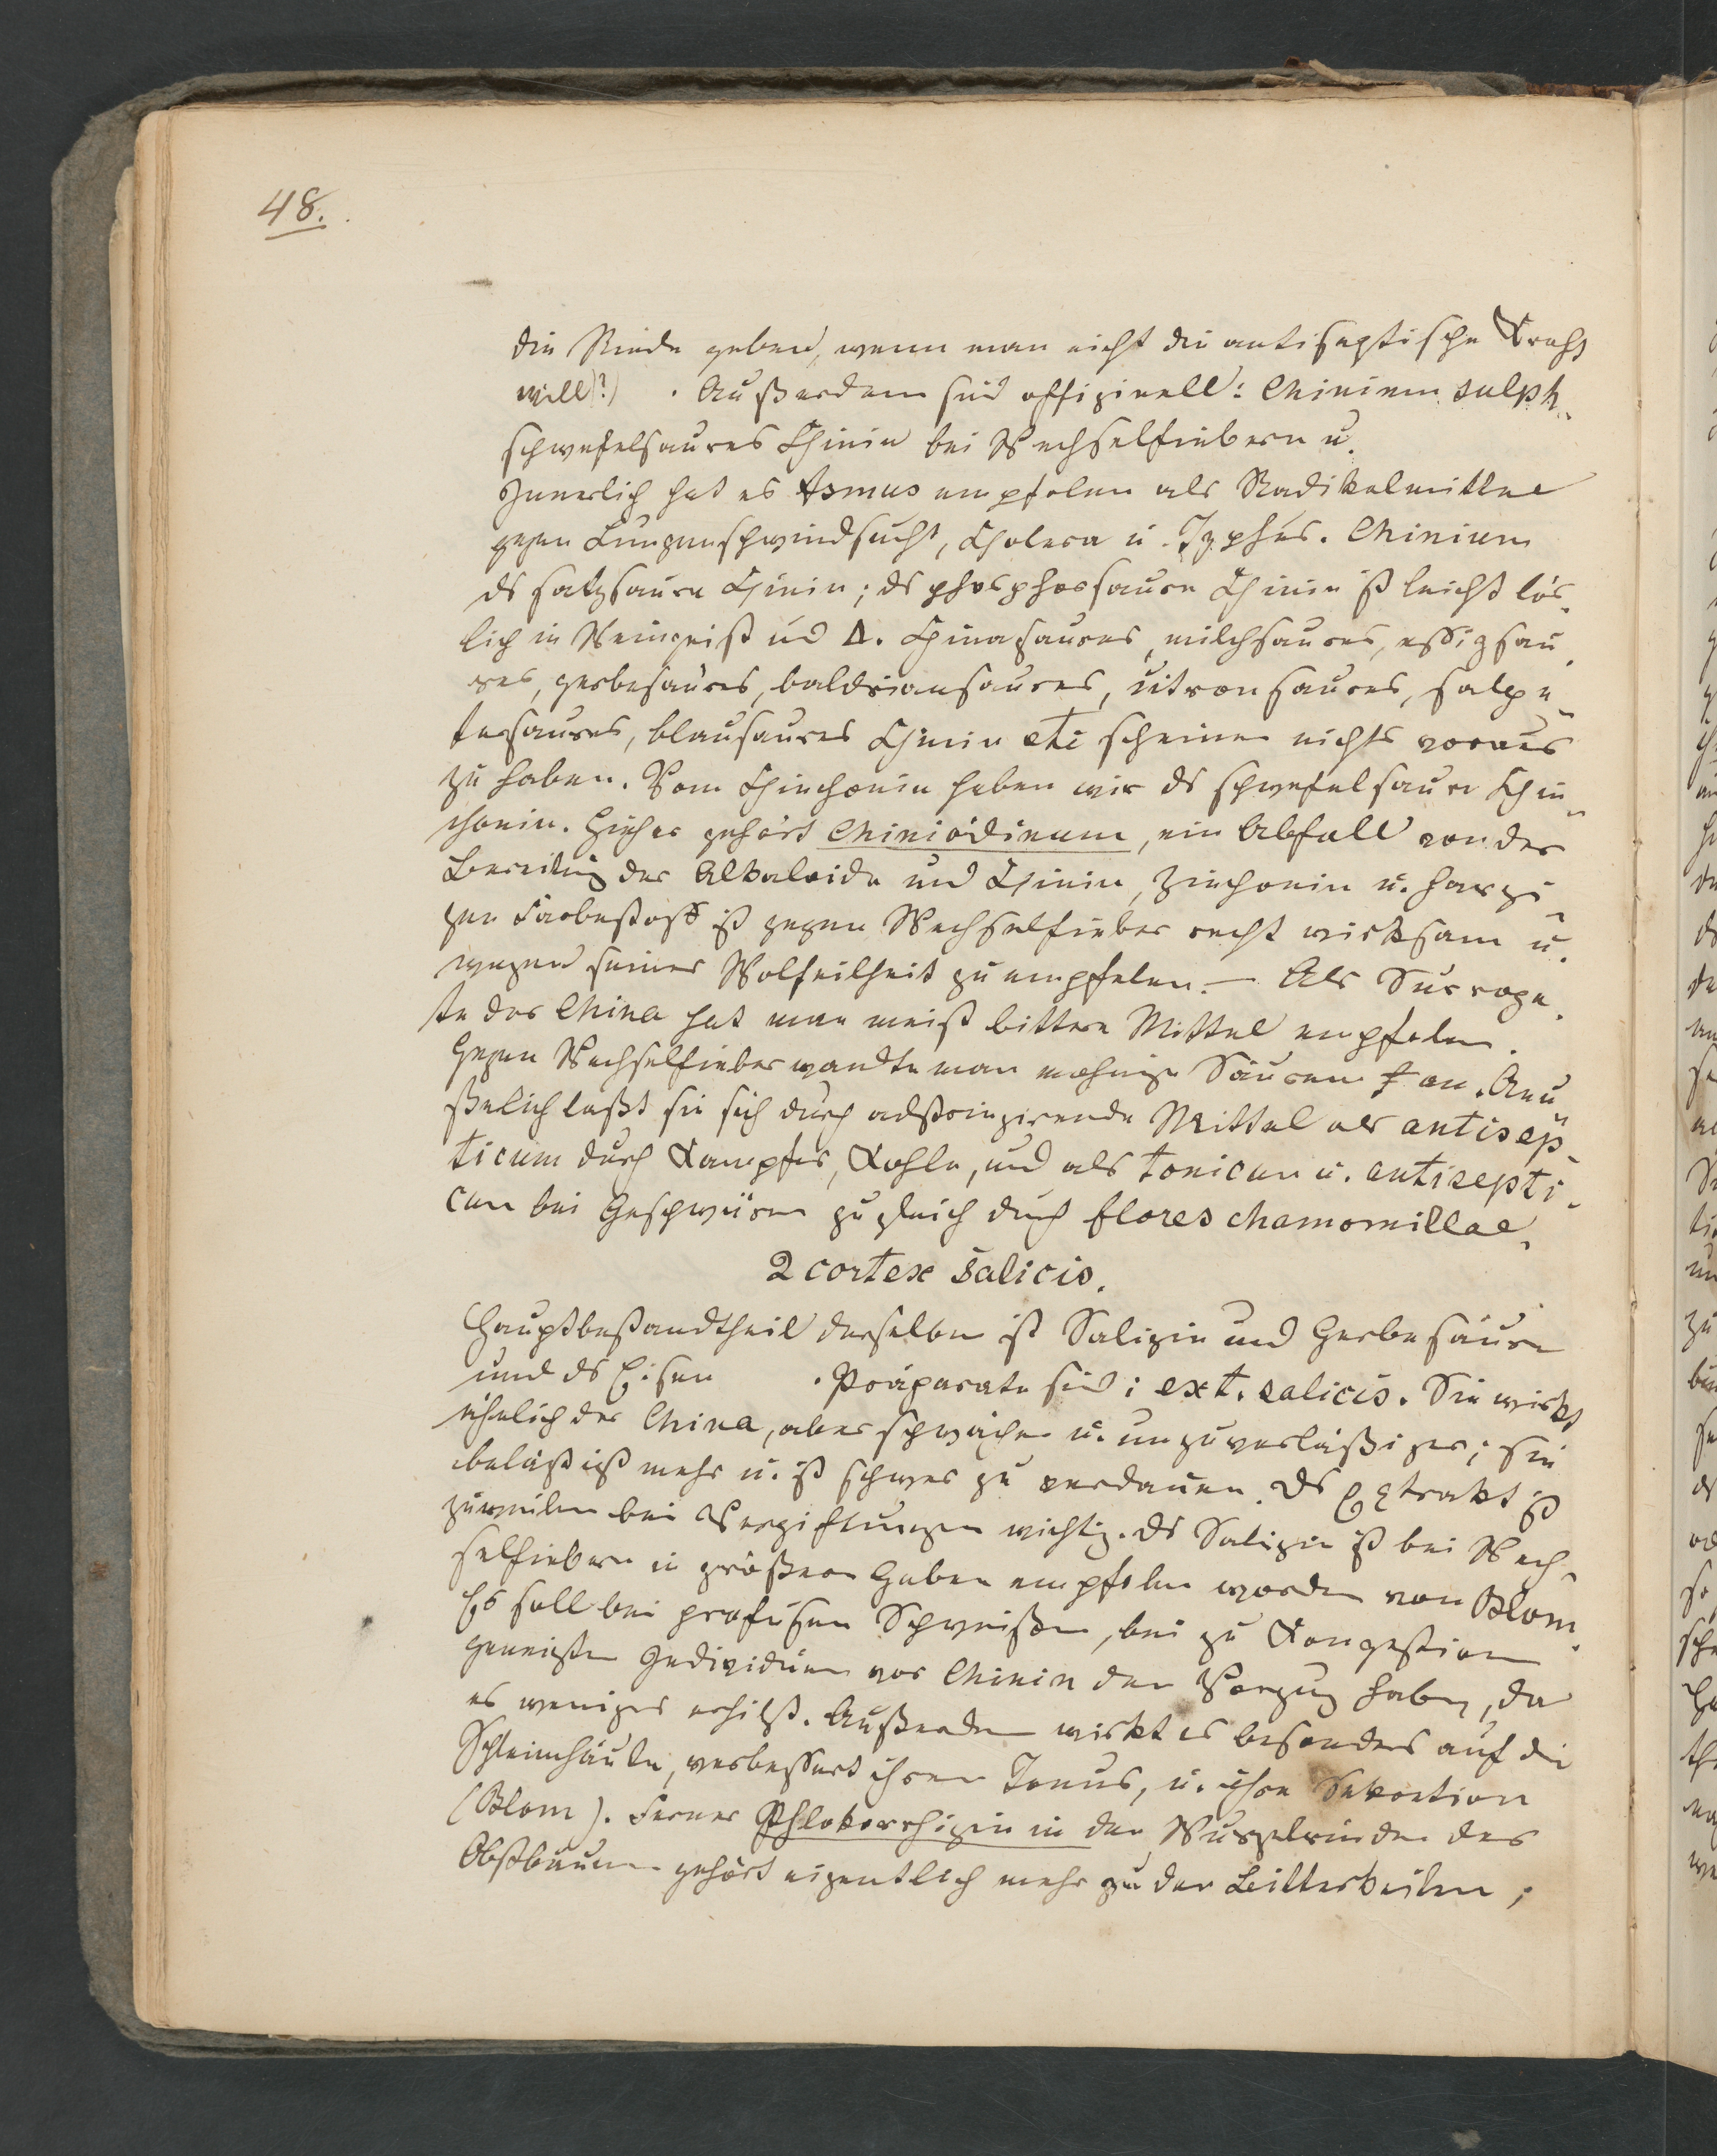 48.
die Rinde geben, wenn man nicht die antiseptische Kraft
will)?) . Außerdem sind offizinell: Chinium sulph.
schwefelsaures Chinin bei Wechselfiebern u.
Innerlich hat es Asmus empfolen als Radikalmittel
gegen Lungenschwindsucht, Cholera u. Typhus. Chinium
ds salzsaure Chinin; ds phosphorsaure Chinin ist leicht lös-
lich in Weingeist und Δ. Chinasaures, milchsaures, essigsau-
res, gerbesaures, baldriansaures, citronsaures, salpe-
tersaures, blausaures Chinin etc scheinen nichts voraus
zu haben. Vom Chinchonin haben wir ds schwefelsaure Chin-
chonin. Hieher gehört Chinioidinum, ein Abfall von der
Bereitung der Alkaloide und Chinin, Zinchonin u. harzi-
gen Farbestoff ist gegen Wechselfieber recht wirksam u.
wegen seiner Wolfeilheit zu empfelen. — Als Surroga-
te der China hat man meist bittere Mittel empfolen.
Gegen Wechselfieber wandte man Säuren an. Aeu-
ßerlich laßt sie sich durch adstringirende Mittel als antisep-
ticum durch Kampfer, Kohle, und als tonicum u. antisepti-
cum bei Geschwüren zugleich durch flores chamomillae.
2 cortex salicis.
Hauptbestandtheil derselben ist Salizin und Gerbesäure
und ds Eisen . Präparate sind: ext. salicis. Sie wirkt
ähnlich der China, aber schwächer u. unzuverläßiger; sie
belästigt mehr u. ist schwer zu verdauen. Ds Extrakt ist
zuweilen bei Vergiftungen wichtig. Ds Salizin ist bei Wech-
selfiebern in größeren Gaben empfolen worden von Blom.
Es soll bei profusen Schweißen, bei zu Kongestion
geneigten Individuen vor Chinin den Vorzug haben, da
es weniger erhitzt. Außerdem wirkt es besonders auf die
Schleimhäute, verbessert ihren Tonus, u. ihre Sekretion
(Blom). Ferner Phlokorrhizin in der Wurzelrinden des
Obstbaumes gehört eigentlich mehr zu den Bitterkeiten;